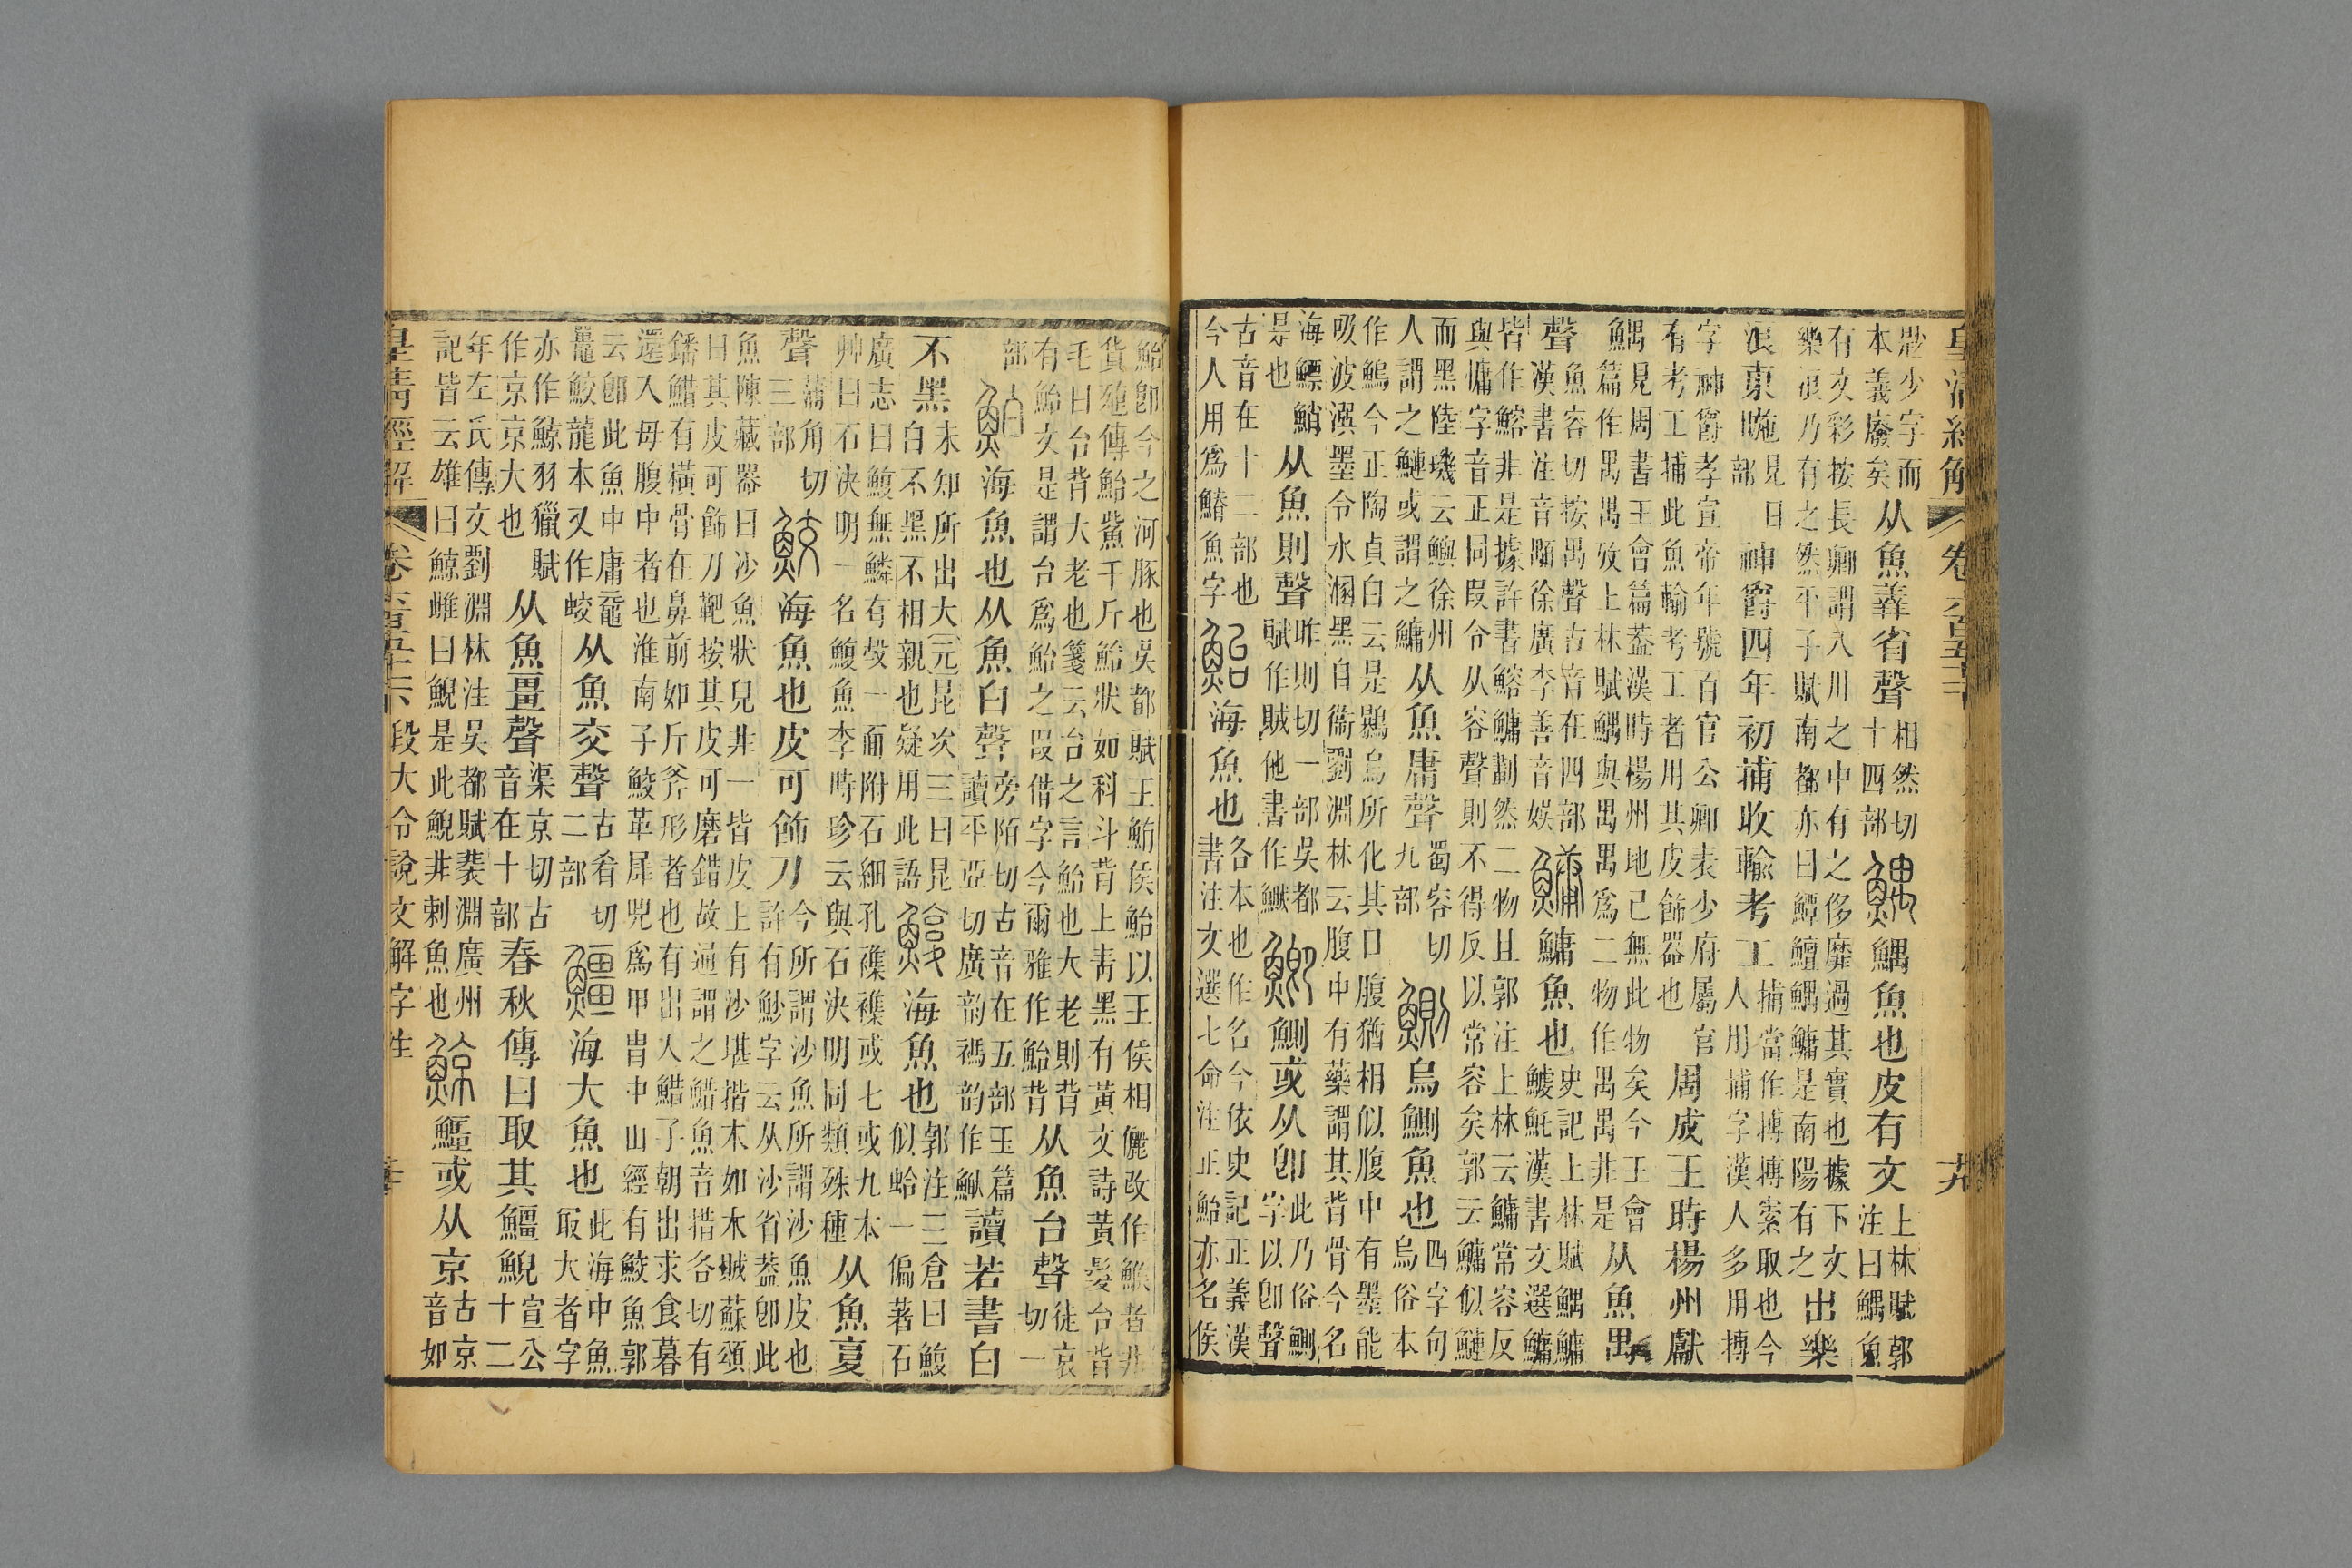 皇清經解
尟少字而本義廢矣从魚羴省聲相然切十四部鰅鰅魚也皮有文上林賦郭注曰鰅魚
有文彩按長卿謂八川之中有之侈靡過其實也據下文樂浪乃有之然平子賦南都亦曰鱏鱣鰅鱅是南陽有之出樂
浪東暆見日部神爵四年初捕收輸考工捕當作搏搏索取也今人用捕字漢人多用搏
字神爵孝宣帝年號百官公卿表少府屬官有考工捕此魚輸考工者用其皮飾器也周成王時楊州獻
鰅見周書王會篇葢漢時楊州地已無此物矣今王會篇作禺禺攷上林賦鰅與禺禺爲二物作禺禺非是从魚禺
聲魚容切按禺聲古音在四部漢書注音顒徐廣李善音娛鱅鱅魚也史記上林賦鰅鱅鰬魠漢書文選鱅
皆作鰫非是據許書鰫鱅劃然二物且郭注上林云鱅常容反與慵字音正同叚令从容聲則不得反以常容矣郭云鱅似鰱
而黑陸璣云鱮徐州人謂之鰱或謂之鱅从魚庸聲蜀容切九部鰂烏鰂魚也四字句烏俗本
作鷠今正陶貞白云是鷃烏所化其口腹猶相似腹中有墨能吸波潠墨令水溷黑自衞劉淵林云腹中有藥謂其背骨今名
海鰾鮹是也从魚則聲昨則切一部吳都賦作賊他書作鱡鯽鰂或从卽此乃俗鰂字以卽聲
古音在十二部也今人用爲鰿魚字鮐海魚也各本也作名今依史記正義漢書注文選七命注正鮐亦名侯
鮐卽今之河豚也吳都賦王鮪侯鮐以王侯相儷改作鯸者非貨殖傳鮐鮆千斤鮐狀如科斗背上靑黑有黃文詩黃髮台背
毛曰台背大老也箋云台之言鮐也大老則背有鮐文是謂台爲鮐之叚借字今爾雅作鮐背从魚台聲徒哀切一
部鮊海魚也从魚白聲旁陌切古音在五部玉篇讀平亞切廣韵禡韵作䱇讀若書白
不黑未知所出大元昆次三曰昆白不黑不相親也疑用此語鰒海魚也郭注三倉曰鰒似蛤一偏著石
廣志曰鰒無鱗有殼一面附石細孔襍襍或七或九本艸曰石決明一名鰒魚李時珍云與石決明同類殊種从魚夏
聲蒲角切三部鮫海魚也皮可飾刀今所謂沙魚所謂沙魚皮也許有魦字云从沙省葢卽此
魚陳藏器曰沙魚狀皃非一皆皮上有沙堪揩木如木賊蘇頌曰其皮可飾刀靶按其皮可磨錯故通謂之鯌魚音措各切有
鐇鯌有橫骨在鼻前如斤斧形者也有出入鯌子朝出求食暮還入母腹中者也淮南子鮫革犀兕爲甲冑中山經有鮫魚郭
云卽此魚中庸黿鼉鮫龍本又作蛟从魚交聲古肴切二部䲔海大魚也此海中魚㝡大者字
亦作鯨羽獵賦作京京大也从魚畺聲渠京切古音在十部春秋傳曰取其䲔鯢宣公十二
年左氏傳文劉淵林注吳都賦裴淵廣州記皆云雄曰鯨雌曰鯢是此鯢非剌魚也鯨䲔或从京古京音如
皇清經解 卷六百五十六 段大令說文解字注